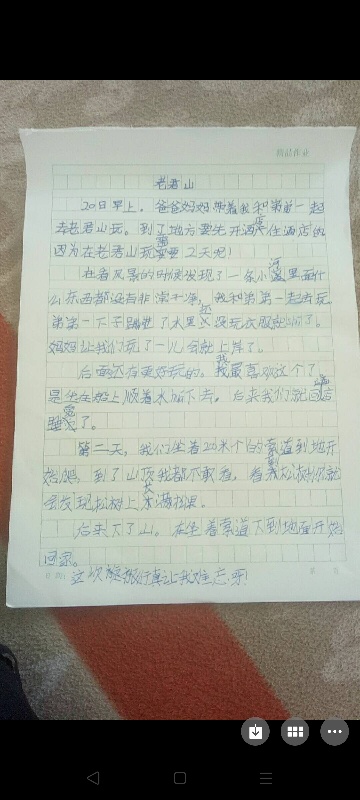 老君山
20日早上，爸爸妈妈带着我和弟弟一起
去老君山玩。到了地方要先开酒店住酒店的
因为在老君山玩需要2天呢！
在看风景的时候发现了一条小河里面什
么东西都没有非常干净，我和弟弟一起去玩
弟弟一下子踏进了水里还没玩衣服就湿了。
妈妈让我们玩了一儿会就上岸了。
后面还有更好玩的。我最喜欢这个了
是坐在船上顺着水流下去。后来我们就回店
睡觉了。
第二天，我们坐着 索道到地开
始爬，到了山顶我都不敢看，看到松树你就
会发现松树上长满松果。
后来下了山。在坐着索道下到地面开始
回家。
这次旅行真让我难忘呀！